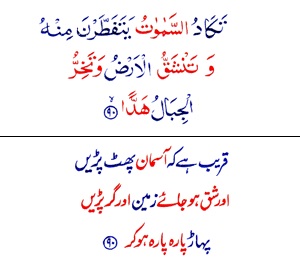 تَكَادُ السَّمٰوٰتُ يَتَفَطَّرْنَ مِنْهُ
وَ تَنْشَقُّ الْاَرْضُ وَتَخِرُّ
الْجِبَالُ هَدًّا ۙ۹۰
قریب ہے کہ آسمان پھٹ پڑیں
اور شق ہو جائے زمین اور گر پڑیں
پہاڑ پارہ پارہ ہو کر ۹۰